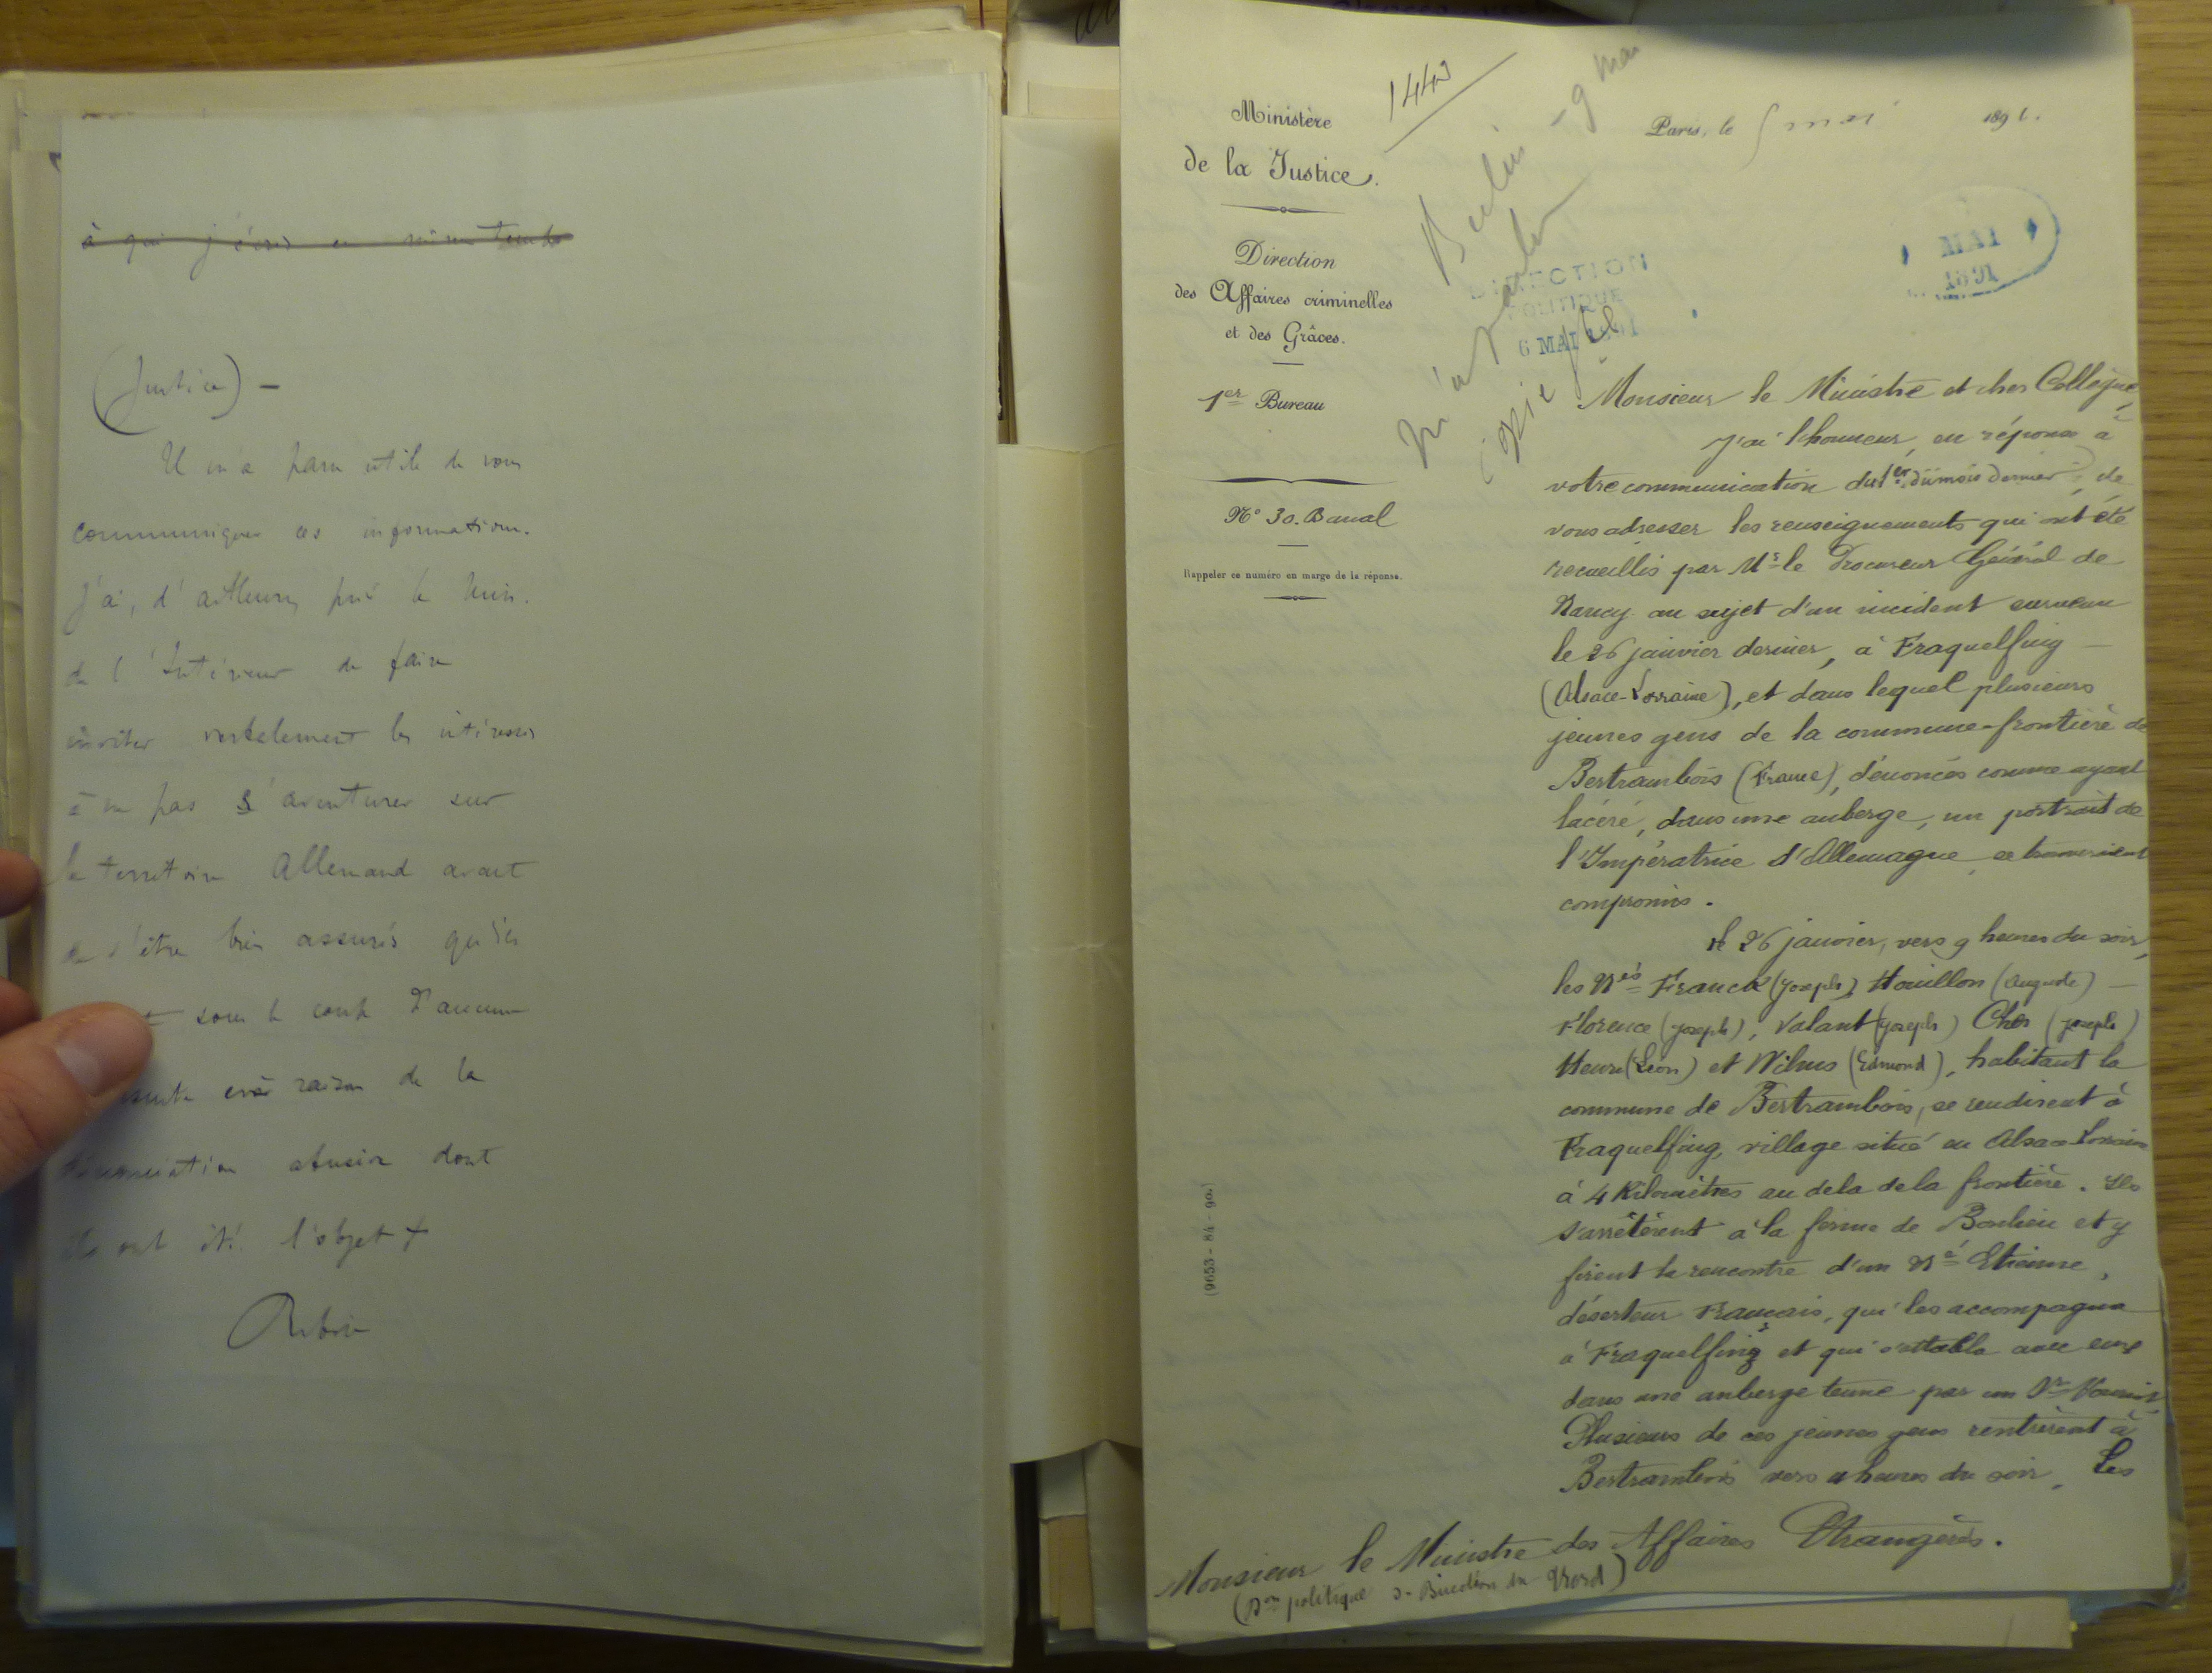 à qui j'écris en même temps
(Justice) —
Il m'a paru utile de vous
communiquer ces informations.
J'ai, d'ailleurs, prié le Min.
de l'Intérieur de faire
inviter verbalement les intéressés
à ne pas s'aventurer sur
le territoire Allemand avant
de s'être bien assurés qu'ils
sous le coup d'aucune
raison de la
dénonciation abusive dont
ils ont été l'objet +
Ribot
1443
Ministère
de la Justice.
Direction
des Affaires criminelles
et des Grâces.
1er Bureau
N° 30. Banal
Rappeler ce numéro en marge de la réponse.
(9653-84-90.)
Berlin - 9 mai
DIRECTION
POLITIQUE
6 MAI 1891
Paris, le 5 mai 1891.
MAI
1891
Monsieur le Ministre et cher Collègue,
J'ai l'honneur, en réponse à
votre communication du 1er du mois dernier, de
vous adresser les renseignements qui ont été
recueillis par Mr le Procureur Général de
Nancy au sujet d'un incident survenu
le 26 janvier dernier, à Fraquelfing —
(Alsace-Lorraine), et dans lequel plusieurs
jeunes gens de la commune-frontière de
Bertrambois (France), dénoncés comme ayant
lacéré, dans une auberge, un portrait de
l'Impératrice d'Allemagne se trouveraient
compromis.
Le 26 janvier, vers 9 heures du soir,
les Nés Franck (Joseph), Houillon (Auguste) —
Florence (Joseph), Valant (Joseph) Cher (Joseph)
Henri (Léon) et Wilms (Edmond), habitant la
commune de Bertrambois, se rendirent à
Fraquelfing, village situé en Alsace Lorraine
à 4 Kilomètres au delà de la frontière. Ils
s'arrêtèrent à la ferme de Bonlieu et y
firent la rencontre d'un Né Etienne,
déserteur Français, qui les accompagna
à Fraquelfing et qui s'attabla avec eux
dans une auberge tenue par un Sr
Plusieurs de ces jeunes gens rentrèrent à
Bertrambois vers 11 heures du soir. Les
Monsieur le Ministre des Affaires Etrangères.
(Don politique S-Direction du Nord)